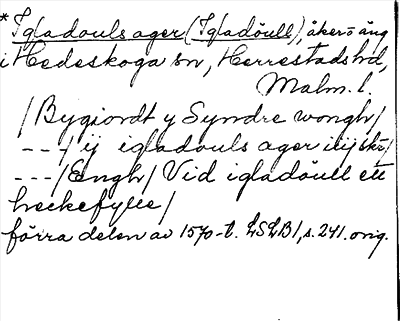 *Igladouls ager (Igladöull), åker o äng
i Hedeskoga sn, Herrestads hd,
Malm. l.
/Bygiordt y Syndre wongh/
---/ij igladouls ager iiij skr/
---/Engh/ Vid igladöull ett
heckefylle/
förra delen av 1570-t. LSLB1, s. 241. orig.